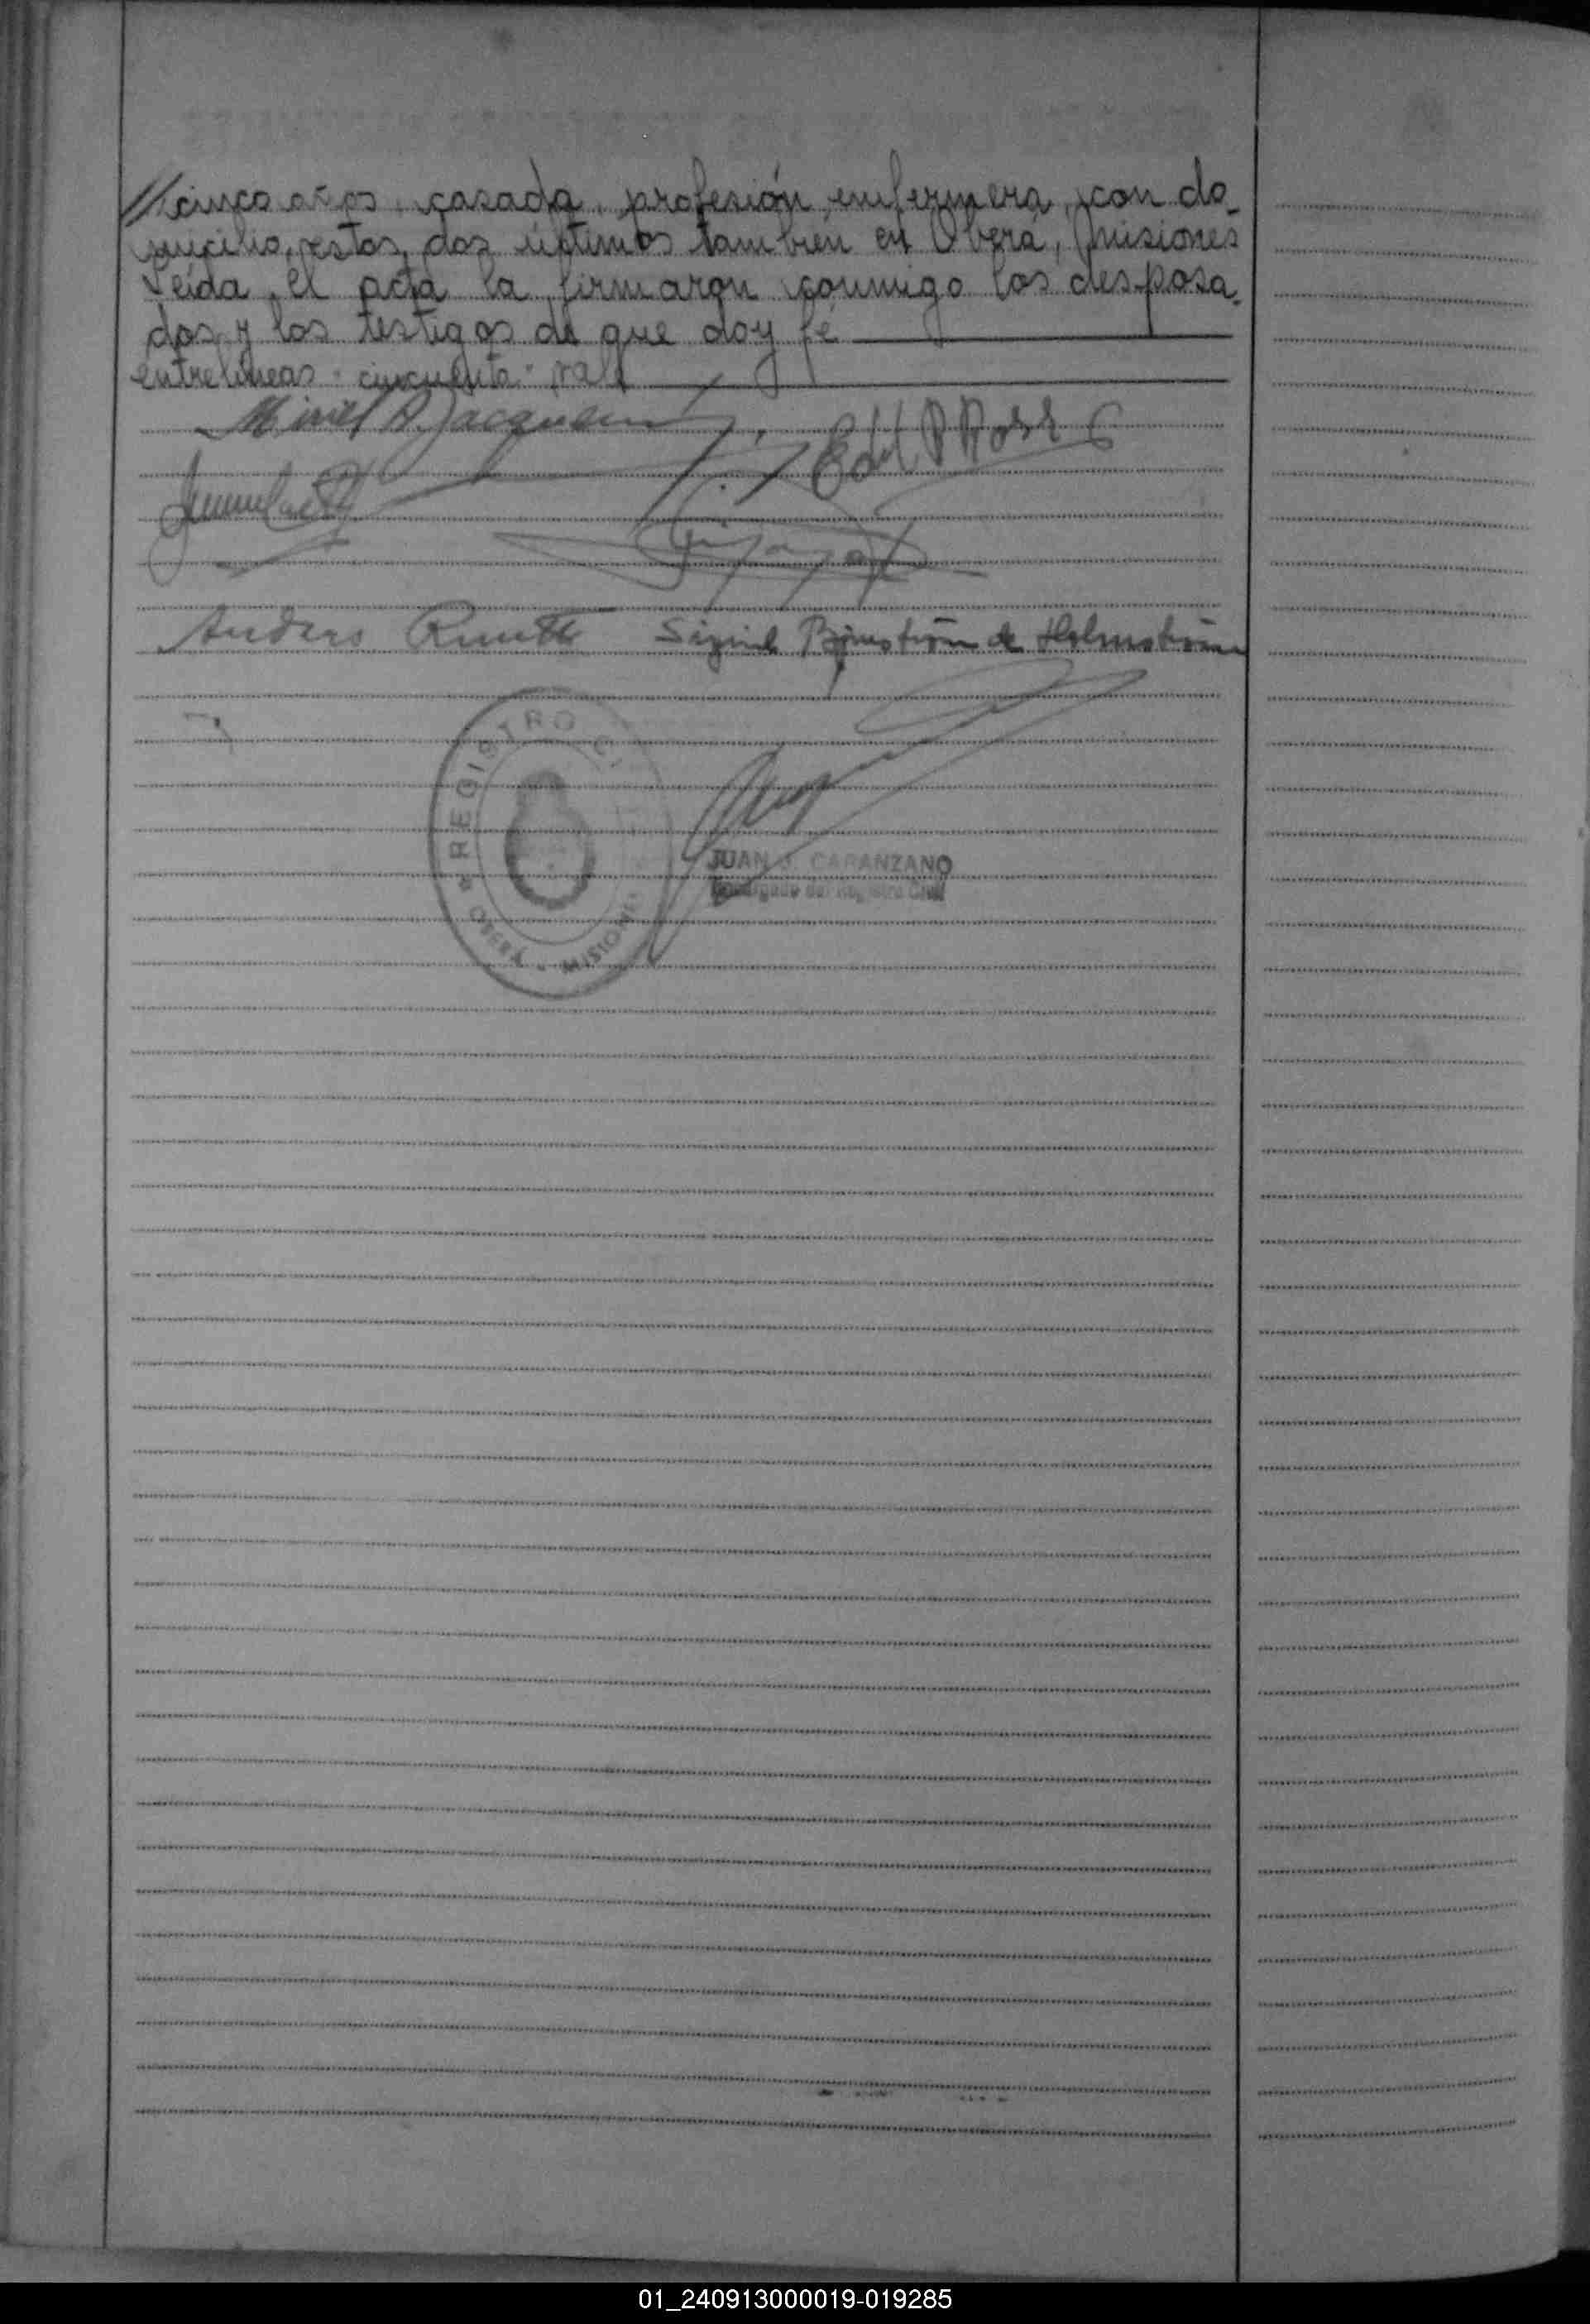 //cinco años, casada, profesión enfermera, con do-
micilio, estos dos últimos también en Oberá, Misiones
Leida el acta la firmaron conmigo los desposa-
dos y los testigos de que doy fé
entrelineas - cincuenta - vale
Anders
Sigrid Björnström de Holmström
REGISTRO C.
OBERÁ - MISIONES
JUAN J. CARANZANO
Encargado del Registro Civil
01_240913000019-019285